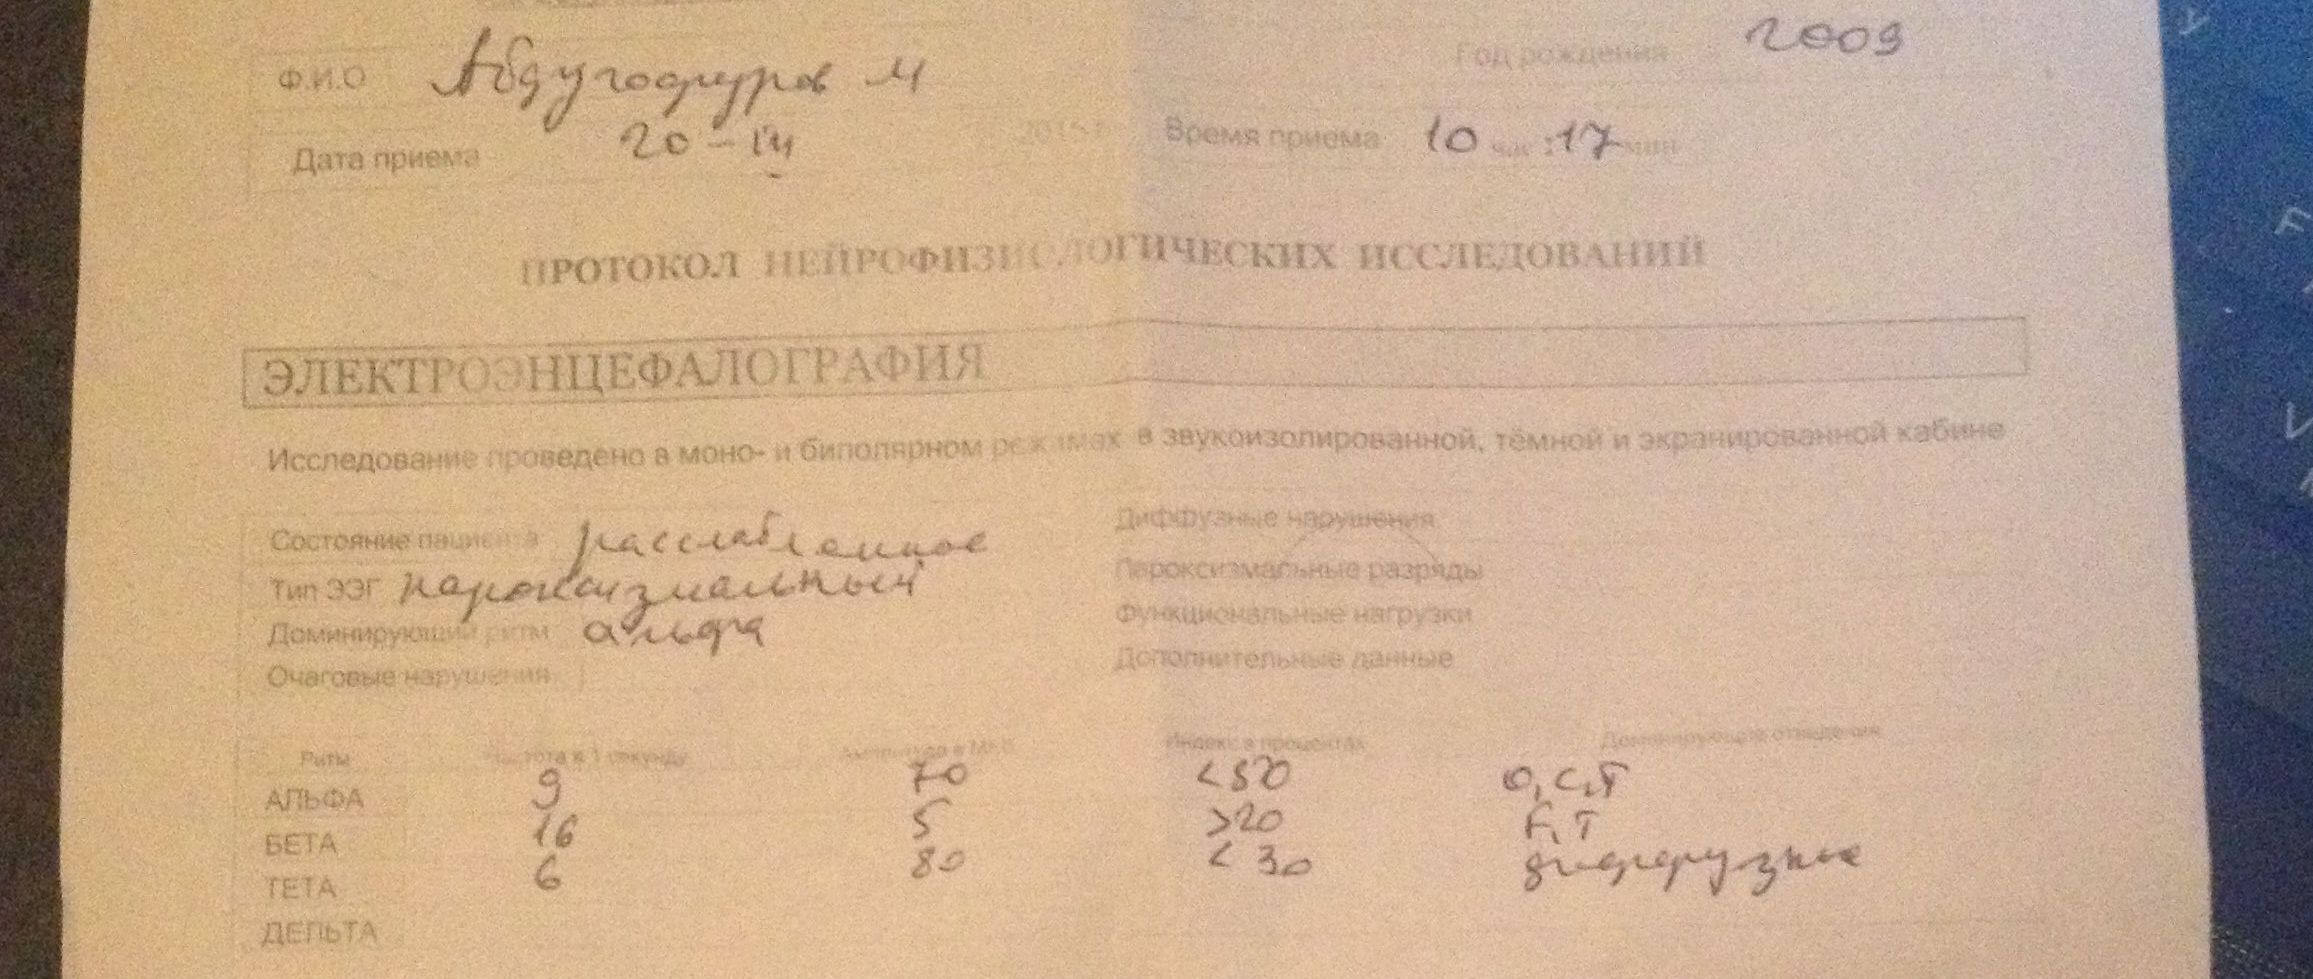 Ф.И.О Абдугофуров М Год рождения 2009
Дата приема 20-IV 2015 г Время приема 10 час :17 мин
ПРОТОКОЛ НЕЙРОФИЗИОЛОГИЧЕСКИХ ИССЛЕДОВАНИЙ
ЭЛЕКТРОЭНЦЕФАЛОГРАФИЯ
Исследование проведено в моно- и биполярном режимах в звукоизолированной, тёмной и экранированной кабине
Состояние пациента расслабленное Диффузные нарушения
Тип ЭЭГ пароксизмальный Пароксизмальные разряды
Доминирующий ритм альфа Функциональные нагрузки
Очаговые нарушения Дополнительные данные
Ритм Частота в 1 секунду Амплитуда в МКВ Индекс в процентах Доминирующие отведения
АЛЬФА 9 70 <50 O, C, T
БЕТА 16 5 >20 F, T
ТЕТА 6 80 <30 диффузные
ДЕЛЬТА
У
F
V